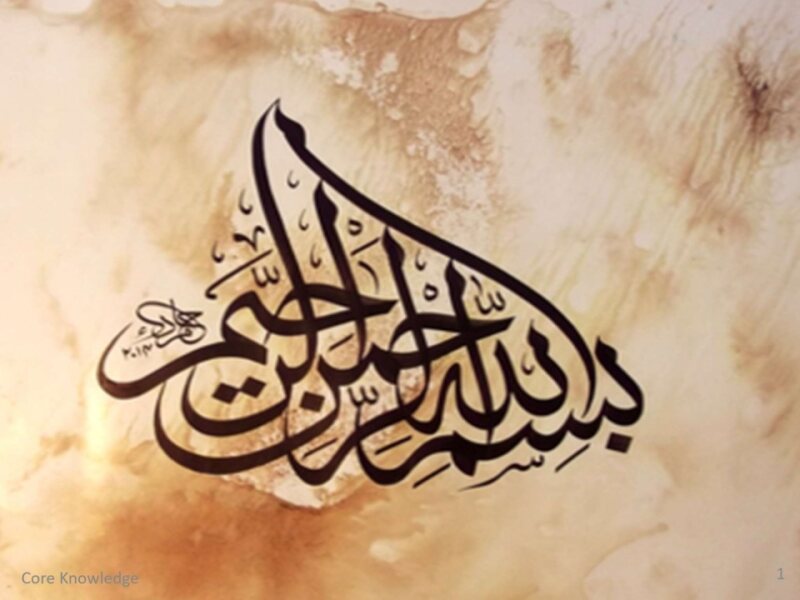 بسم الله الرحمن الرحيم
٢٠١٣
Core Knowledge
1